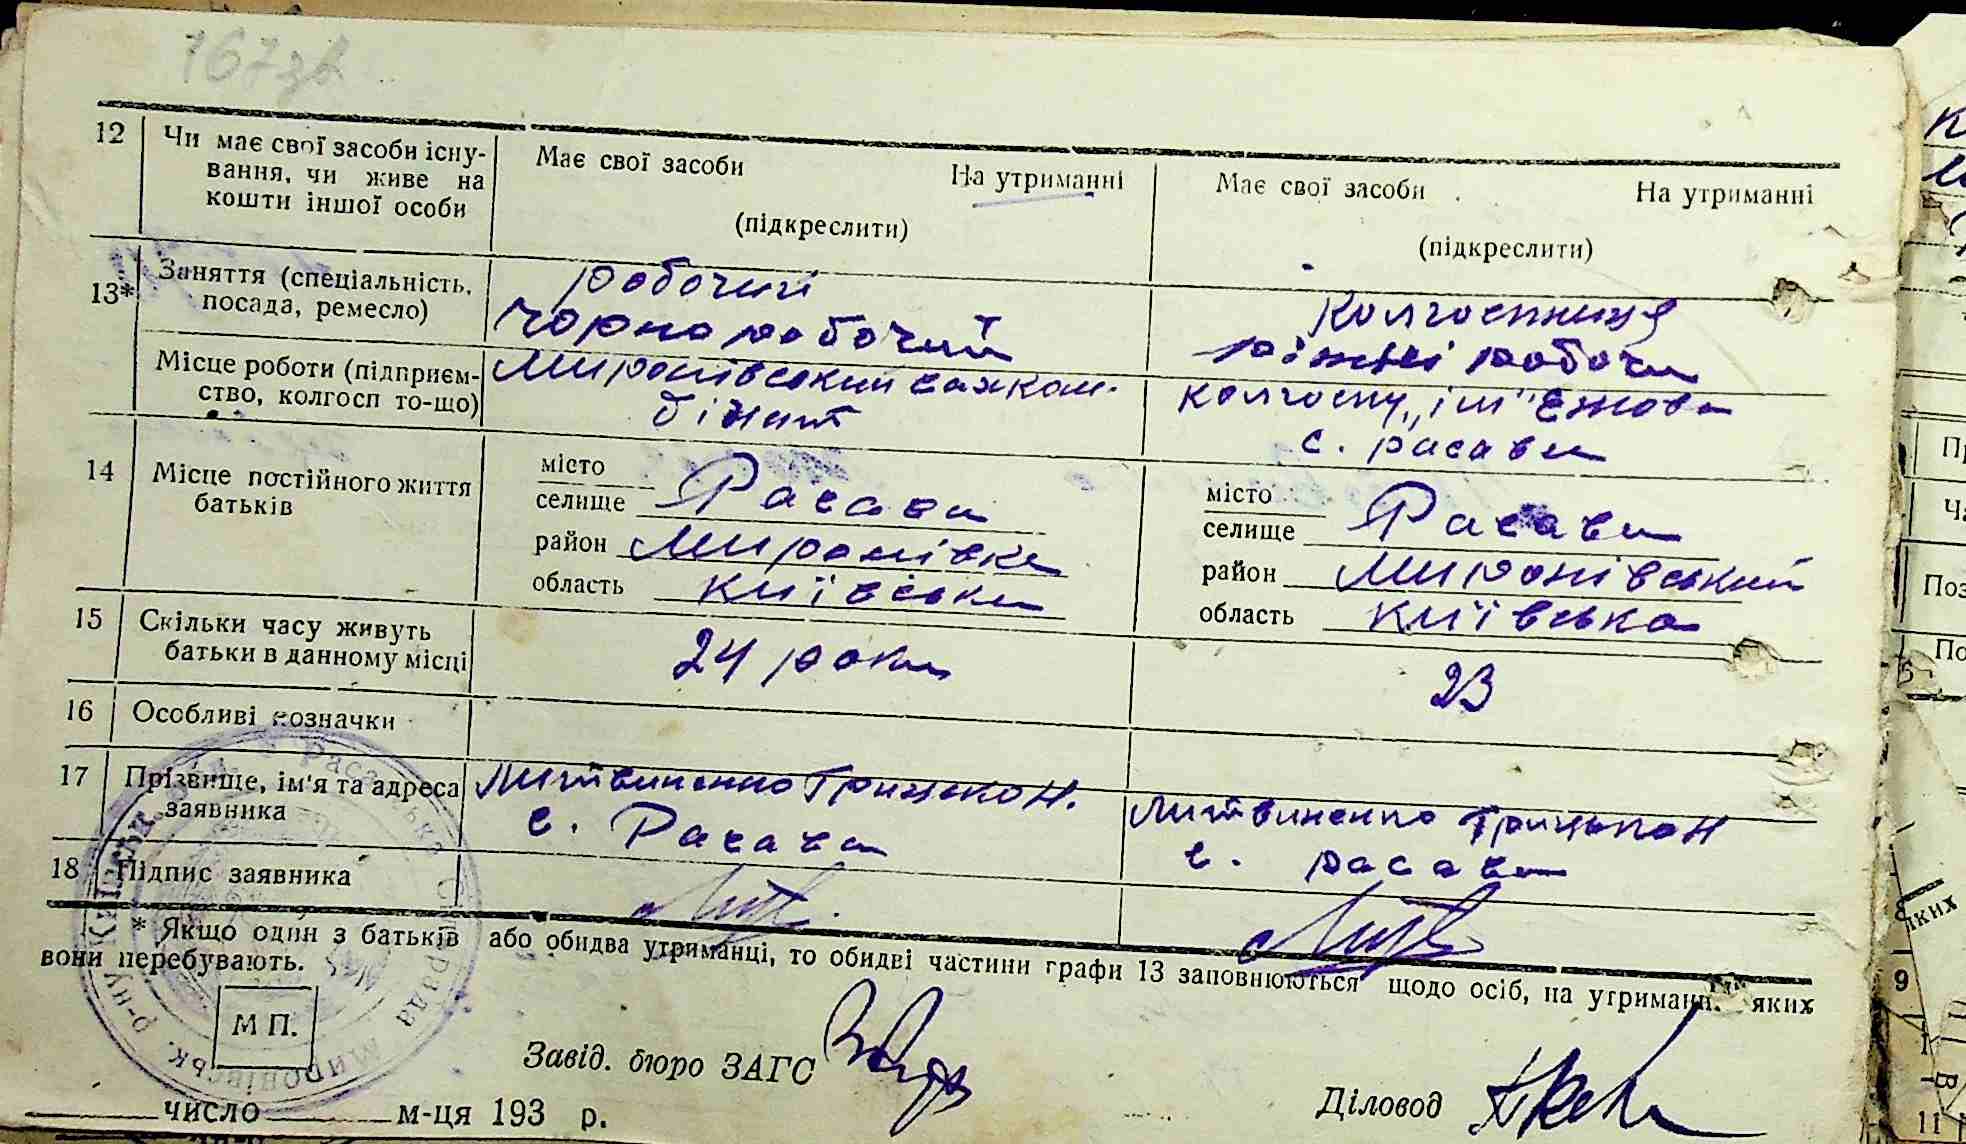 167зв
12 Чи має свої засоби існу-
вання, чи живе на
кошти іншої особи
Має свої засоби На утриманні
(підкреслити)
Має свої засоби На утриманні
(підкреслити)
13* Заняття (спеціальність,
посада, ремесло)
робочий
чорноробочий
колгоспниця
ріжні роботи
Місце роботи (підприєм-
ство, колгосп то-що)
Миронівський
бінат
колгоспу "ім" Єжова
с. расава
14 Місце постійного життя
батьків
місто
селище Расава
район Миронівка
область київська
місто
селище Расава
район Миронівський
область київська
15 Скільки часу живуть
батьки в данному місці
24 роки
23
16 Особливі позначки
17 Прізвище, ім'я та адреса
заявника
Литвиненко Грицько Н.
с. Расава
Литвиненко Грицько Н
с. расава
18 Підпис заявника
Лит
Лит
* Якщо один з батьків або обидва утриманці, то обидві частини графи 13 заповнюються щодо осіб, на утриманні яких
вони перебувають.
М П.
Завід. бюро ЗАГС
Діловод
число м-ця 193 р.
Расавська Сільрада Миронівськ. р-ну Київськ.
яких
9
11